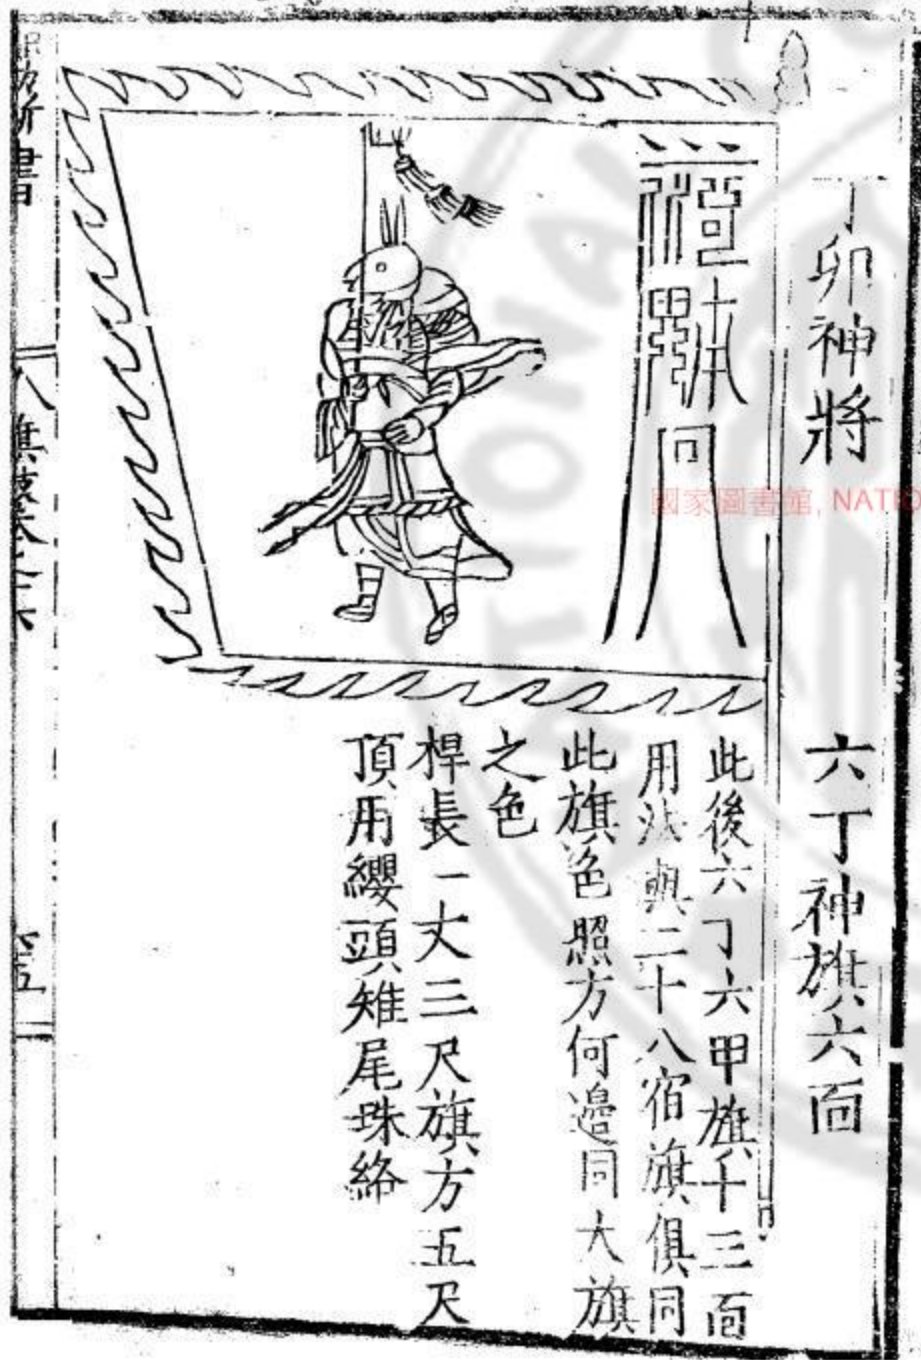 丁卯神將
六丁神旗六面
此後六丁六甲旗十三面
用法與二十八宿旗俱同
此旗色照方何邊同大旗
之色
桿長一丈三尺旗方五尺
頂用纓頭雉尾珠絡
國家圖書館, NATIO